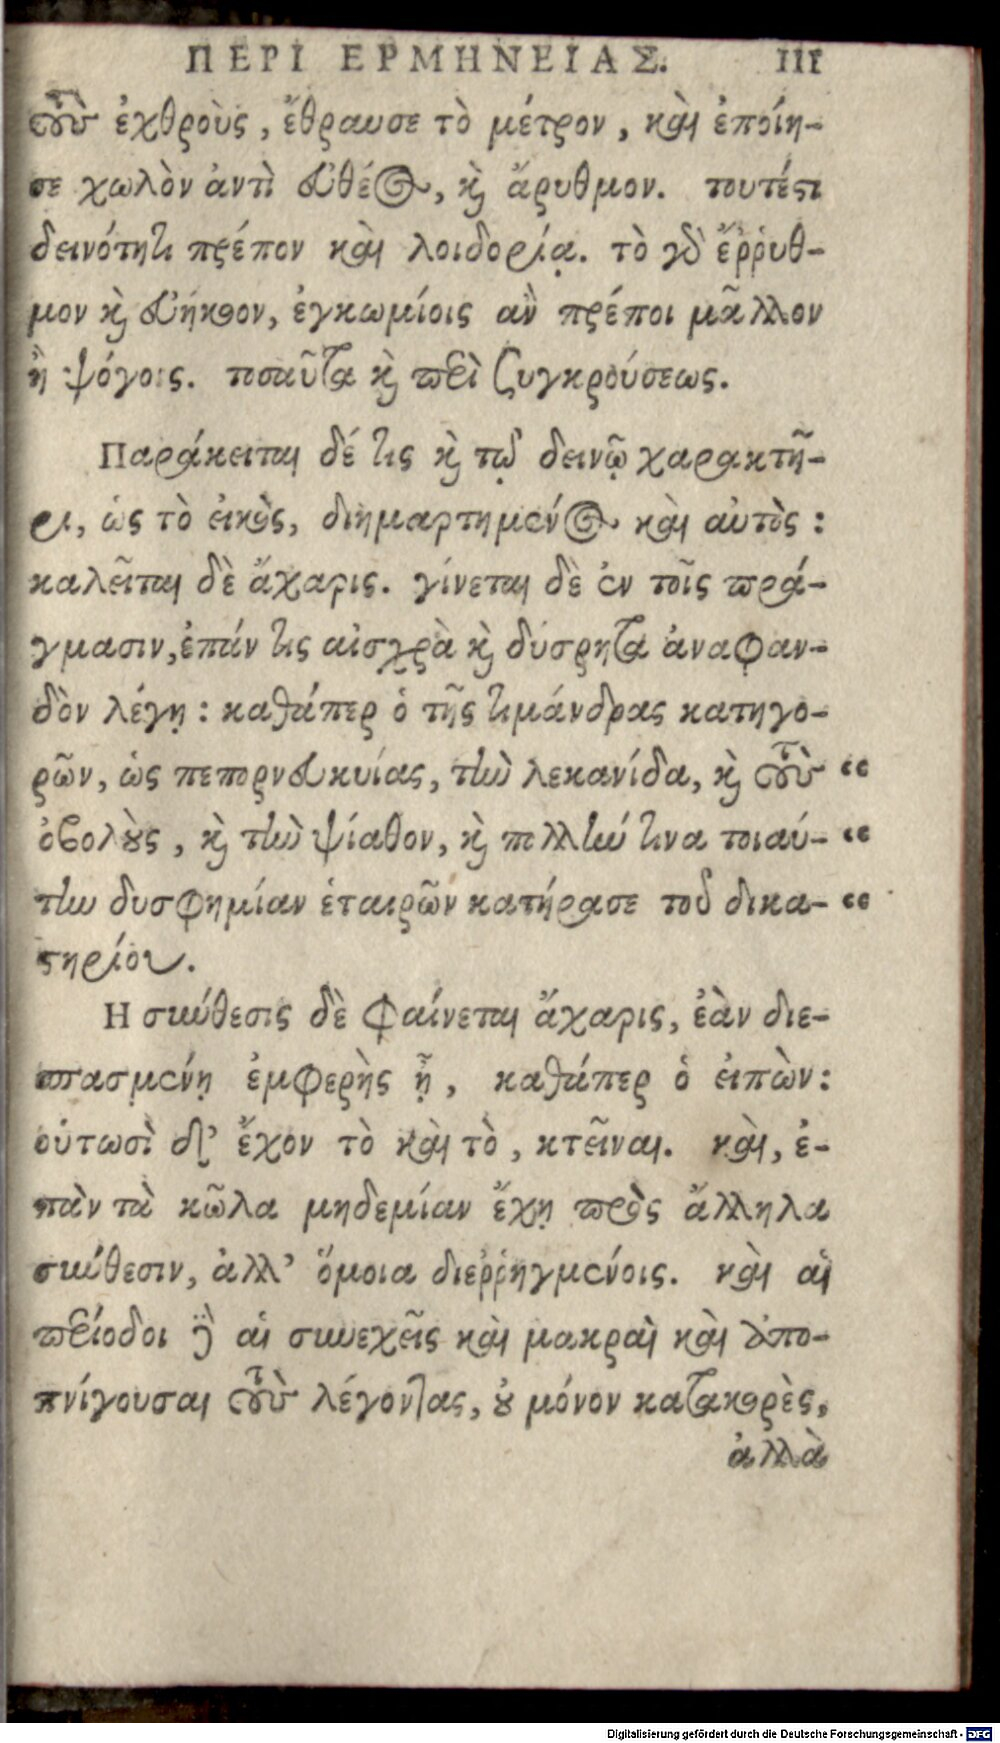 ΠΕΡΙ ΕΡΜΗΝΕΙΑΣ. 111
τοὺς ἐχθροὺς, ἔθραυσε τὸ μέτρον, καὶ ἐποίη-
σε χωλὸν ἀντὶ εὐθέος, καὶ ἄρυθμον. τουτέστι
δεινότητι πρέπον καὶ λοιδορίᾳ. τὸ γὰρ ἔῤῥυθ-
μον καὶ εὐήκοον, ἐγκωμίοις ἂν πρέποι μᾶλλον
ἢ ψόγοις. τοσαῦτα καὶ περὶ ζυγκρούσεως.
Παράκειται δέ τις καὶ τῷ δεινῷ χαρακτῆ-
ρι, ὡς τὸ εἰκὸς, διημαρτημένος καὶ αὐτὸς :
καλεῖται δὲ ἄχαρις. γίνεται δὲ ἐν τοῖς πρά-
γμασιν, ἐπάν τις αἰσχρὰ καὶ δύσρητα ἀναφαν-
δὸν λέγῃ : καθάπερ ὁ τῆς τιμάνδρας κατηγο-
ρῶν, ὡς πεπορνευκυίας, τὴν λεκανίδα, καὶ τοὺς “
ὀβολοὺς, καὶ τὴν ψίαθον, καὶ πολλήν τινα τοιαύ- “
την δυσφημίαν ἑταιρῶν κατήρασε τοῦ δικα- “
στηρίου.
Η σύνθεσις δὲ φαίνεται ἄχαρις, ἐὰν διε-
σπασμένῃ ἐμφερὴς ᾖ, καθάπερ ὁ εἰπών :
οὑτωσὶ δ’ ἔχον τὸ καὶ τὸ, κτεῖναι. καὶ, ἐ-
πὰν τὰ κῶλα μηδεμίαν ἔχῃ πρὸς ἄλληλα
σύνθεσιν, ἀλλ’ ὅμοια διεῤῥηγμένοις. καὶ αἱ
περίοδοι δὲ αἱ συνεχεῖς καὶ μακραὶ καὶ ἀπο-
πνίγουσαι τοὺς λέγοντας, οὐ μόνον κατακορὲς,
ἀλλὰ
Digitalisierung gefördert durch die Deutsche Forschungsgemeinschaft - DFG